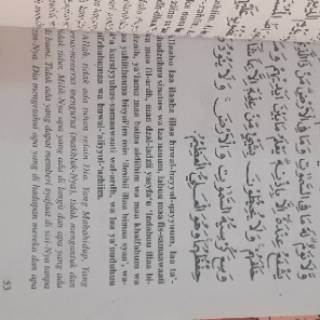 نَوْمٌ لَهُ مَا فِى السَّمٰوٰتِ وَمَا فِى الْاَرْضِ مَنْ ذَا الَّذِى
يَشْفَعُ عِنْدَهُ اِلَّا بِاِذْنِهِ يَعْلَمُ مَا بَيْنَ اَيْدِيْهِمْ وَمَا
خَلْفَهُمْ وَلَا يُحِيْطُوْنَ بِشَيْءٍ مِنْ عِلْمِهِ اِلَّا بِمَا شَاءَ
وَسِعَ كُرْسِيُّهُ السَّمٰوٰتِ وَالْاَرْضَ وَلَا يَئُوْدُهُ
حِفْظُهُمَا وَهُوَ الْعَلِيُّ الْعَظِيْمُ
Allaahu laa ilaaha illaa huwal-hayyul-qayyuum, laa ta'-
khudzuhuu sinatuw wa laa nauum, lahuu maa fis-samaawaati
wa maa fil-ardh, man dzal-ladzii yasyfa'u 'indahuu illaa bi-
idznih, ya'lamu maa baina aidiihim wa maa khalfahum wa
laa yuhiithuuna bisyai'im min 'ilmihii illaa bimaa syaa', wa-
si'a kursiyyuhus-samaawaati wal-ardh, wa laa ya'uuduhuu
hifzhuhumaa wa huwal-'aliyyul-'azhiim.
Allah, tidak ada tuhan selain Dia. Yang Mahahidup, Yang
terus-menerus mengurus (makhluk-Nya), tidak mengantuk dan
tidak tidur. Milik-Nya apa yang ada di langit dan apa yang ada
di bumi. Tidak ada yang dapat memberi syafaat di sisi-Nya tanpa
izin-Nya. Dia mengetahui apa yang di hadapan mereka dan apa
53